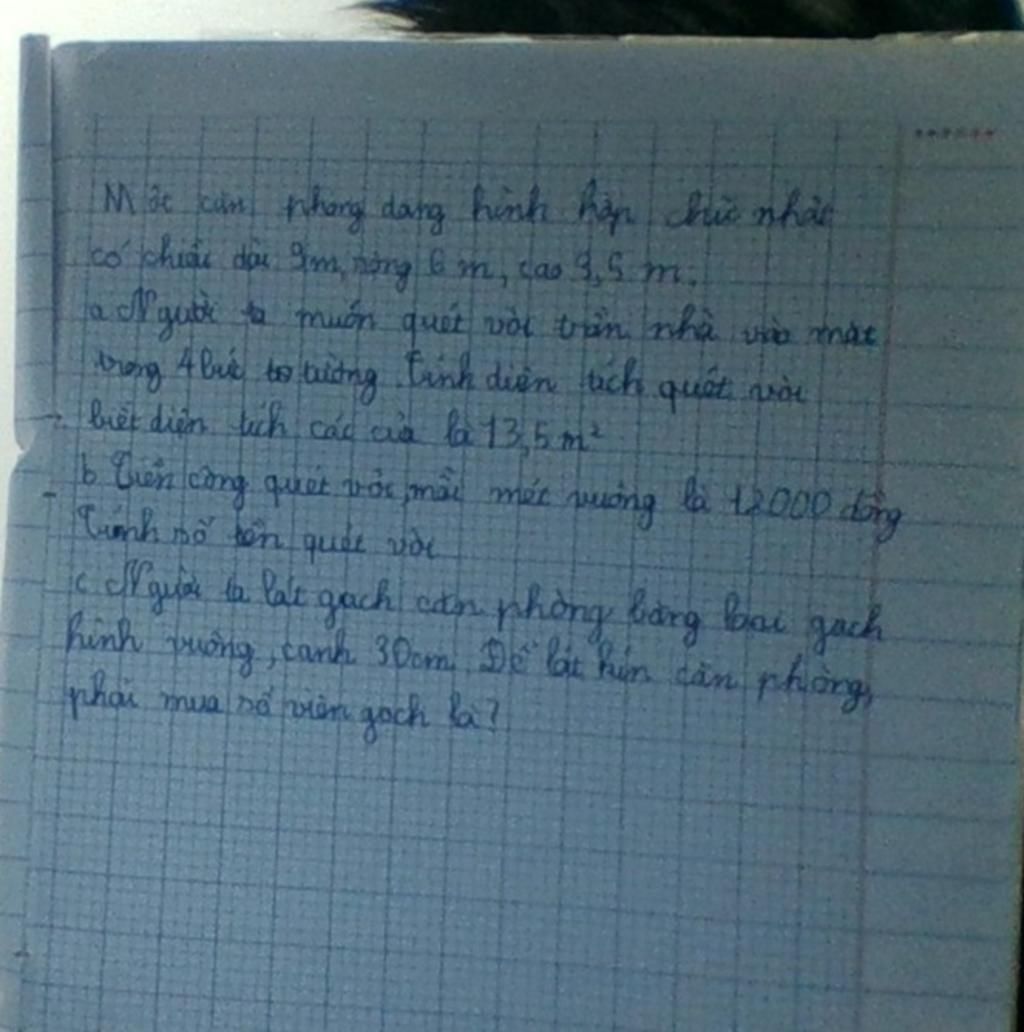 Một căn phòng dạng hình hộp chữ nhật
có chiều dài 9m, rộng 6 m, cao 3,5 m.
a Người ta muốn quét vôi trần nhà vào mặt
trong 4 bức to tường. Tính diện tích quét vôi
biết diện tích các cửa là 13,5 m²
b Tiền công quét vôi mỗi mét vuông là 12000 đồng
Tính số tiền quét vôi
c Người ta lát gạch căn phòng bằng loại gạch
hình vuông, cạnh 30cm. Để lát kín căn phòng,
phải mua số viên gạch là?